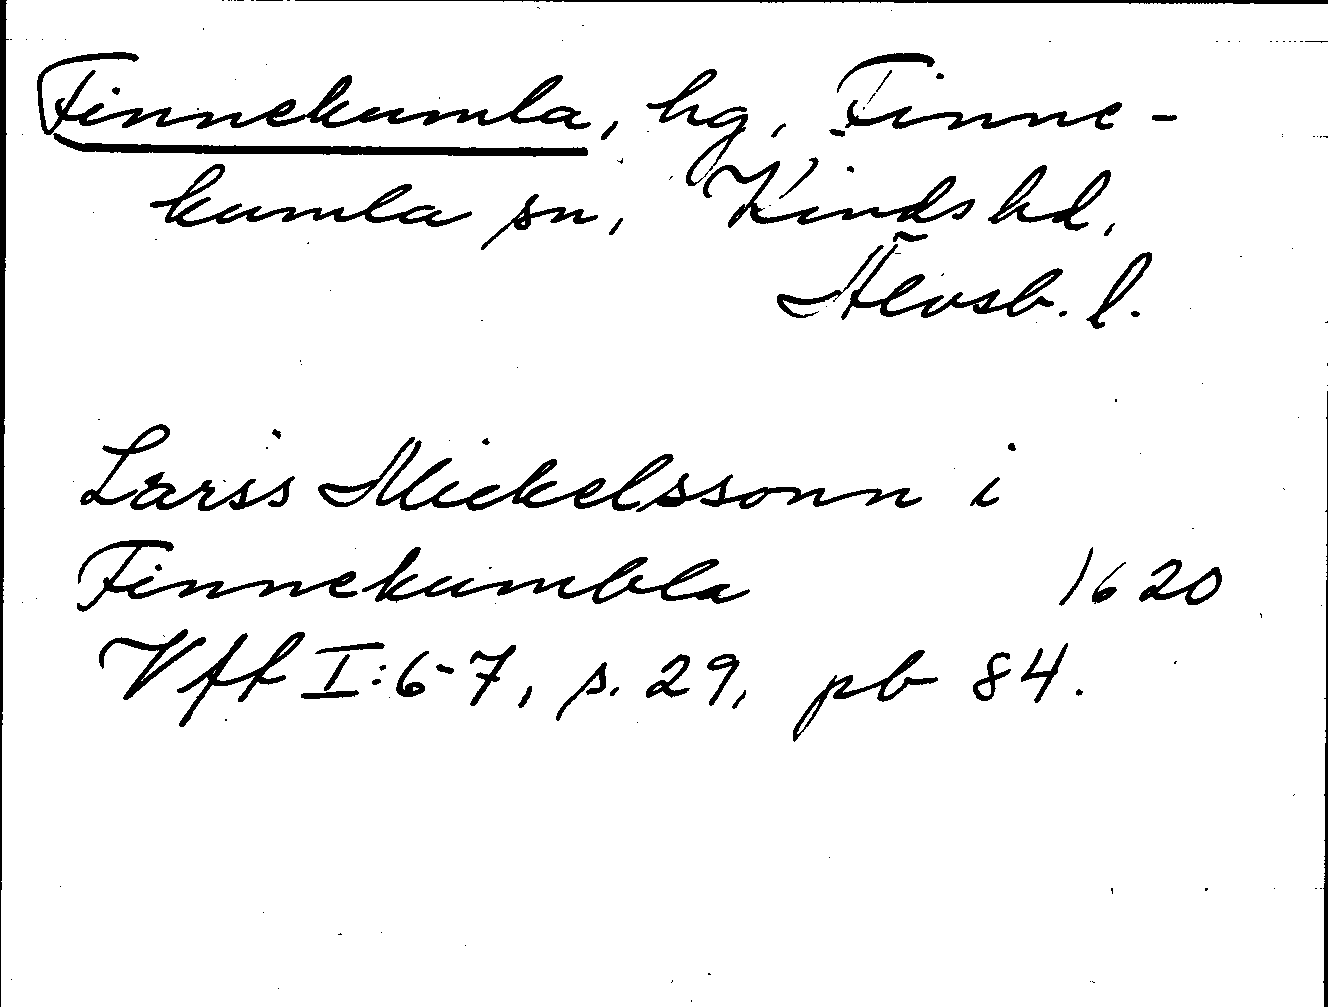 Finnekumla, hg, Finne-
kumla sn, Kinds hd,
Älvsb. l.
Larss Mickelssonn i
Finnekumbla 1620
Vff I:6-7, s. 29, pb 84.